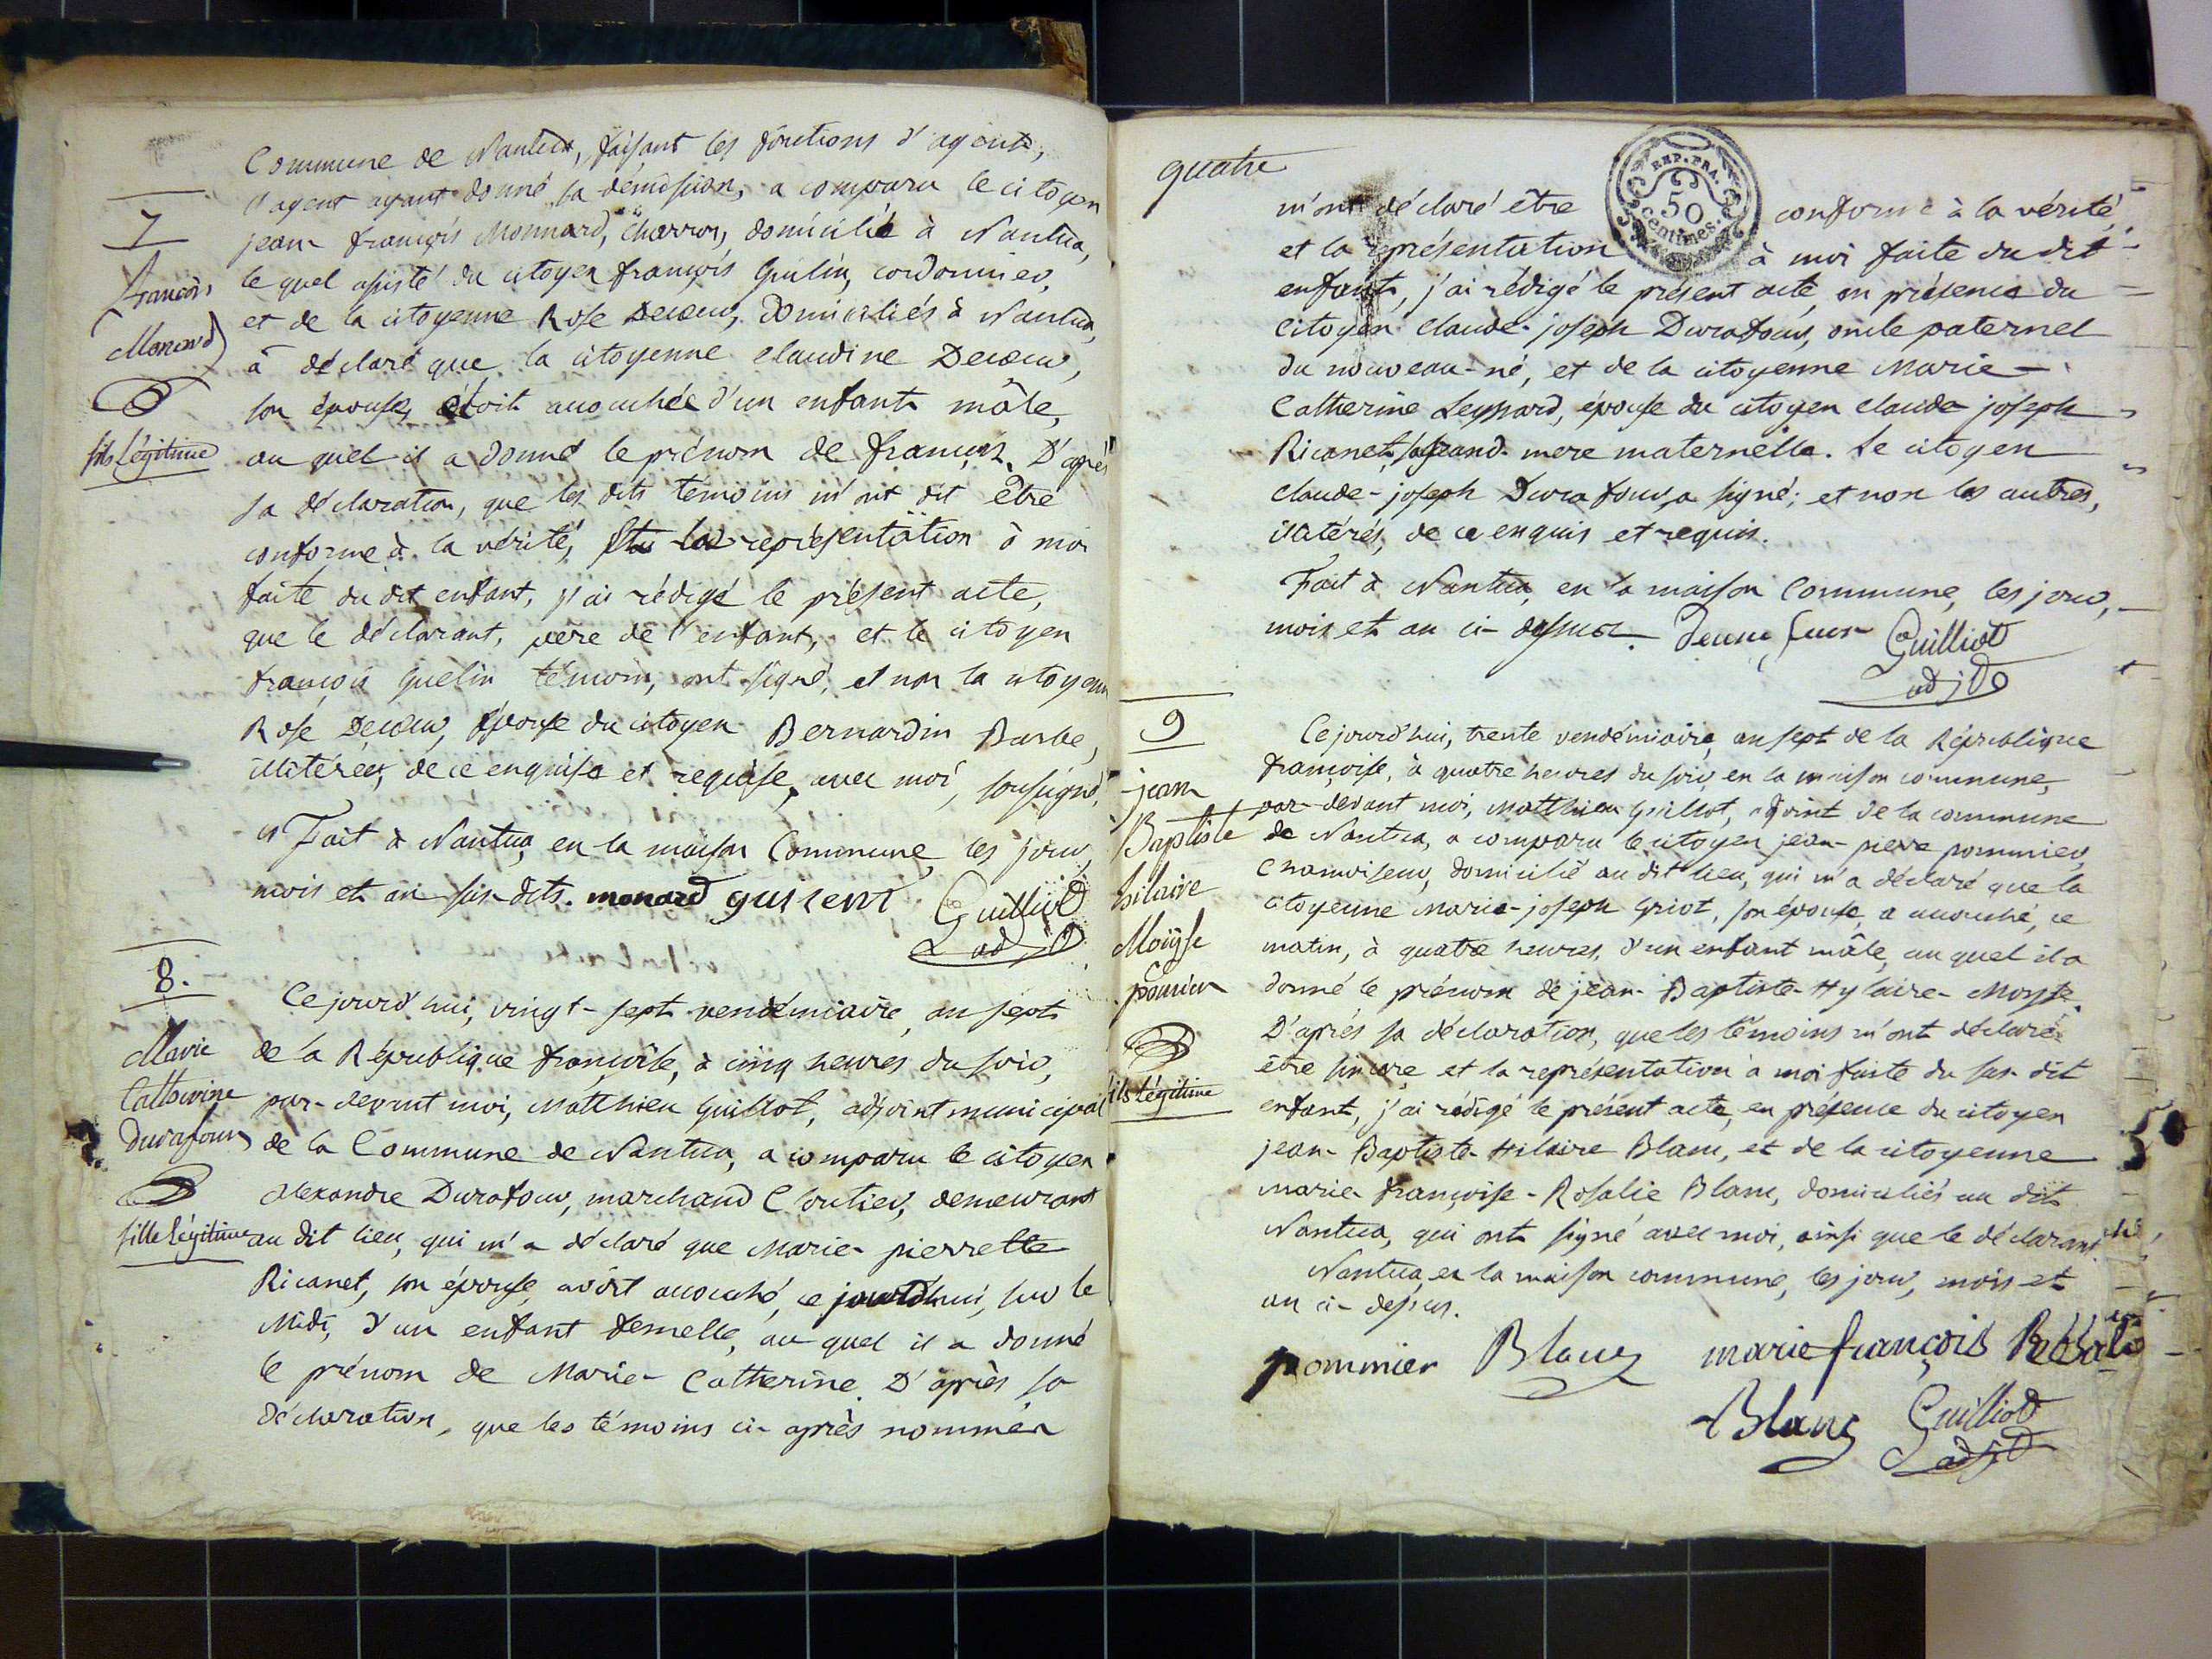 Commune de Nantua, faisant les fonctions d'agent,
l'agent ayant donné sa démission, a comparu le citoyen
7
jean françois Monnard, charron, domicilié à Nantua,
françois
Monard
fils légitime
le quel assisté du citoyen françois Guélin, cordonnier,
et de la citoyenne Rose Decoeur, domiciliés à Nantua,
à déclaré que la citoyenne claudine Decoeur,
son épouse, étoit accouchée d'un enfant mâle,
au quel il a donné le prénom de françois. D'après
sa déclaration, que les dits témoins m'ont dit être
conforme à la vérité, représentation à moi
faite du dit enfant, j'ai rédigé le présent acte,
que le déclarant, père de l'enfant, et le citoyen
françois Guelin témoin, ont signé, et non la citoyenne
Rose Decoeur, épouse du citoyen Bernardin Barbe,
illitérée, de ce enquise et requise, avec moi, soussigné,
Fait à Nantua, en la maison Commune, les jour,
mois et an sus-dits. monard Guilliot
adjt
8.
Marie
Catherine
Durafour
fille légitime
Ce jourd'hui, vingt-sept vendémiaire, an sept
de la République françoise, à cinq heures du soir,
par-devant moi, Matthieu Guillot, adjoint municipal
de la Commune de Nantua, a comparu le citoyen
Alexandre Durafour, marchand Cloutier, demeurant
au dit lieu, qui m'a déclaré que Marie-pierrette
Ricanet, son épouse, avoit accouché, ce jourd'hui, sur le
Midi, d'un enfant femelle, au quel il a donné
le prénom de Marie-Catherine. D'après sa
déclaration, que les témoins ci-après nommés
quatre
REP. FRA.
50
centimes.
m'ont déclaré être conforme à la vérité,
et la représentation à moi faite du dit
enfant, j'ai rédigé le présent acte, en présence du
citoyen claude-joseph Durafour, oncle paternel
du nouveau-né, et de la citoyenne Marie-
Catherine Leyssard, épouse du citoyen claude joseph
Ricanet, sa grand-mere maternelle. Le citoyen
claude-joseph Durafour, a signé; et non les autres,
illitérés, de ce enquis et requis.
Fait à Nantua, en la maison Commune, les jour,
mois et an ci-dessus. Guilliot
adjt
9
jean
Baptiste
hilaire
Moïse
pomier
fils légitime
Ce jourd'hui, trente vendémiaire, an sept de la République
françoise, à quatre heures du soir, en la maison commune,
par-devant moi, Matthieu Guillot, adjoint de la commune
de Nantua, a comparu le citoyen jean-pierre pommier,
chamoiseur, domicilié au dit lieu, qui m'a déclaré que la
citoyenne Marie-joseph Griot, son épouse, a accouché, ce
matin, à quatre heures, d'un enfant mâle, au quel il a
donné le prénom de jean-Baptiste-Hylaire-Moyse.
D'après sa déclaration, que les témoins m'ont déclaré
être sincere, et la représentation à moi faite du sus-dit
enfant, j'ai rédigé le présent acte, en présence du citoyen
jean-Baptiste-Hilaire Blanc, et de la citoyenne
marie-françoise-Rosalie Blanc, domiciliés au dit
Nantua, qui ont signé avec moi, ainsi que le déclarant
Nantua, en la maison commune, les jour, mois et
an ci-dessus.
pommier Blanc marie françois
Blanc Guilliot
adjt